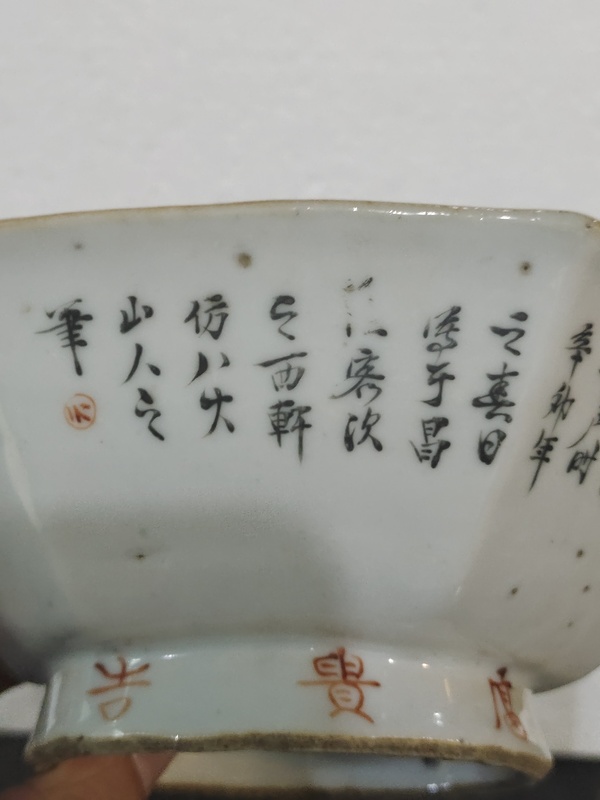 時
辛卯年
之春日
寫于昌
江客次
之西軒
仿八大
山人之
筆
富貴吉